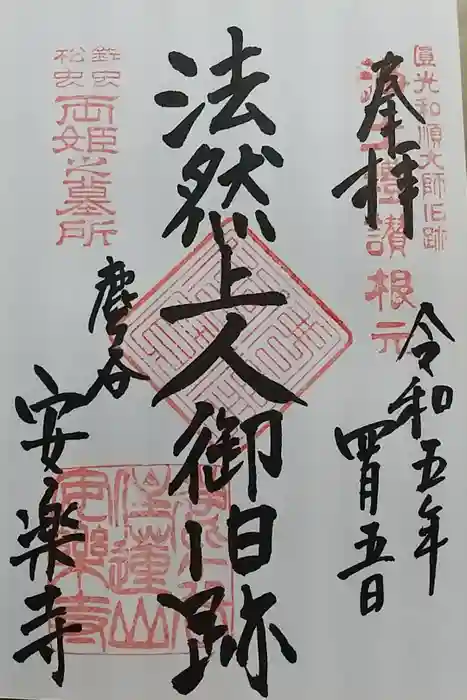 圓光和順大師旧跡
奉拝
讃根元
令和五年
四月五日
法然上人御旧跡
鈴虫
松虫
両姫之墓所
鹿ヶ谷
安楽寺
住蓮山
安楽寺